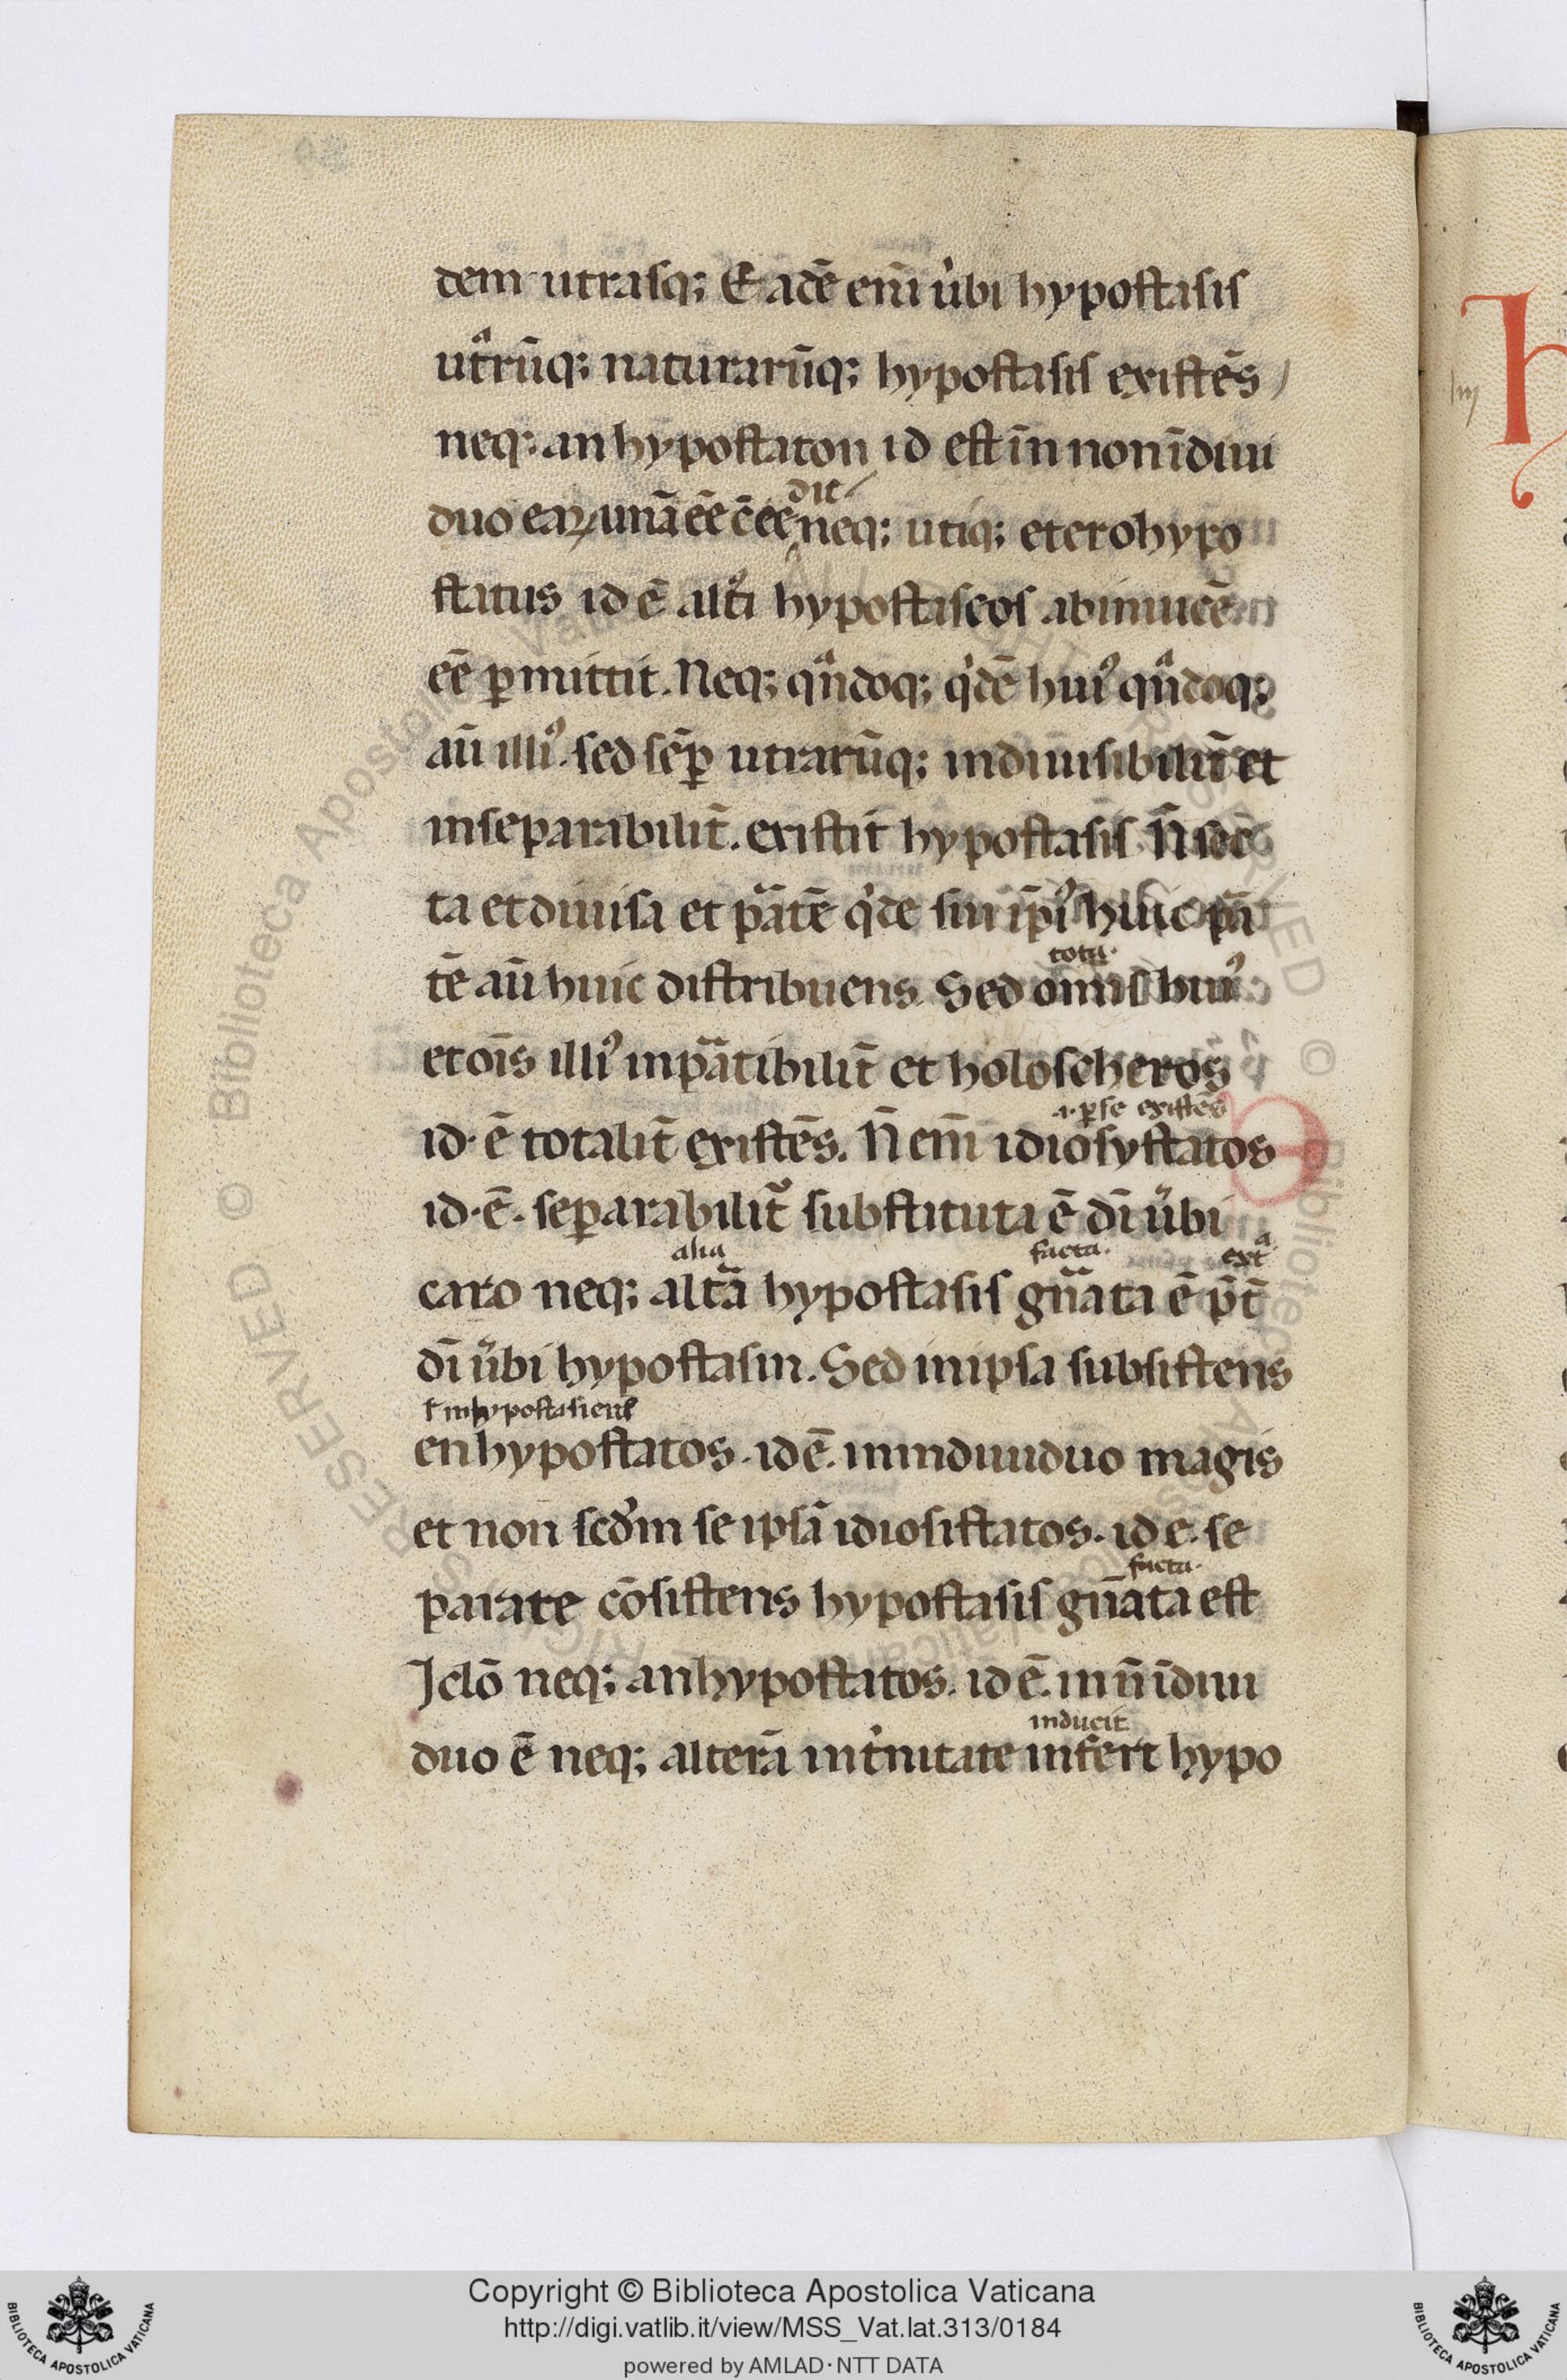 dem utrasq; Eadē eni̅ u̇bi hypostasis
utͣrūq; naturarūq; hypostasis existēs
neq; anhypostaton id est in̅ non i̅diui
dit
duo eaꝝ unā ēē c̄ēē neq; utiq; eterohypo
status id ē alti hypostaseos abinuicē
ēē ꝑmittit. Neq; qͣn̄doq; q̇dē huiꝰ qͣn̄doq;
aū illiꝰ. sed sēꝑ utrarūq; indiuisibilit̄ et
inseparabilit̄. existit hypostasis. N̄ sec
ta et diuisa et pͣatē q̇de sui ip̄iꝰ huic pͣa
tota.
tē aū huic distribuens. Sed omnis huiꝰ
et oīs illiꝰ inpͣatibilit̄ et holoscheros
.i. ꝑse existēs
id. ē totalit̄ existēs. N̄ eni̅ idiosystatos
id. ē. seꝑarabilit̄ substituta ē dī u̇bi
alia facta. extͣ
caro neq; altͣā hypostasis gn̄ata ē p̄t̄
dī u̇bi hypostasin. Sed in ipsa subsistens
ł inhypostasieuſ
enhypostatos. id ē. in indiuiduo magis
et non scdm̄ se ipsā idiosistatos. id e. se
facta.
parate cōsistens hypostasis gn̄ata est
Jclō neq; anhypostatos. id ē. in n̄ i̅diui
inducit.
duo ē neq; alterā in tͥnitate infert hypo
Copyright © Biblioteca Apostolica Vaticana
http://digi.vatlib.it/view/MSS_Vat.lat.313/0184
powered by AMLAD·NTT DATA
BIBLIOTECA APOSTOLICA VATICANA
BIBLIOTECA APOSTOLICA VATICANA